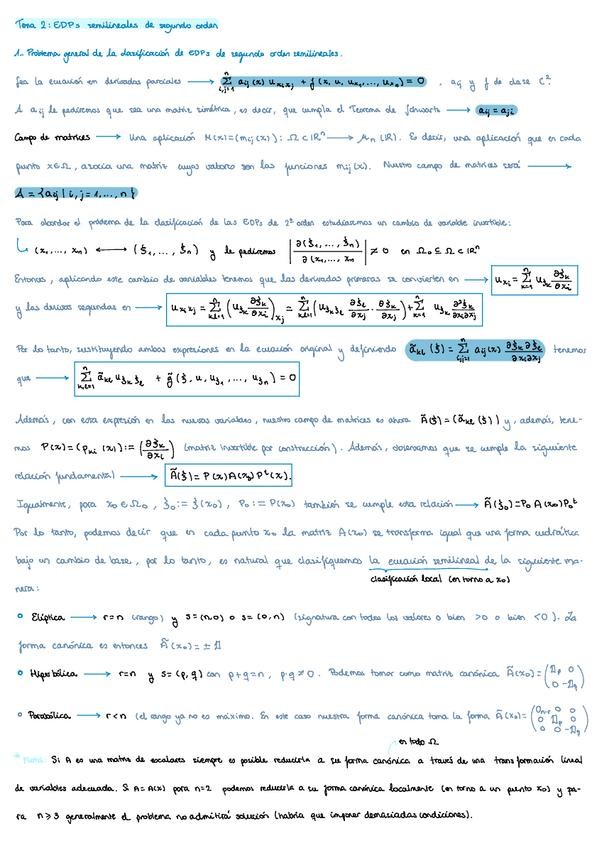 Tema 2: EDPs semilineales de segundo orden
1.. Problema general de la clasificación de EDPs de segundo orden semilineales.
Sea la ecuación en derivadas parciales → \sum_{i,j=1}^{n} a_{ij}(x) u_{x_i x_j} + f(x, u, u_{x_1}, ..., u_{x_n}) = 0 , a_{ij} y f de clase C².
A a_{ij} le pediremos que sea una matriz simétrica, es decir, que cumpla el Teorema de Schwartz → a_{ij} = a_{ji}
Campo de matrices → Una aplicación M(x)=(m_{ij}(x)): Ω ⊂ ℝⁿ → M_n(ℝ). Es decir, una aplicación que en cada
punto x∈Ω, asocia una matriz cuyos valores son las funciones m_{ij}(x). Nuestro campo de matrices será →
A = {a_{ij} | i, j = 1, ..., n}
Para abordar el problema de la clasificación de las EDPs de 2º orden estudiaremos un cambio de variable invertible:
(x_1, ..., x_n) ↔ (ξ_1, ..., ξ_n) y le pediremos |∂(ξ_1, ..., ξ_n) / ∂(x_1, ..., x_n| ≠ 0 en Ω_0 ⊆ Ω ⊂ ℝⁿ
Entonces, aplicando este cambio de variables tenemos que las derivadas primeras se convierten en → u_{x_i} = \sum_{k=1}^{n} u_{ξ_k} ∂ξ_k/∂x_i
y las derivas segundas en → u_{x_i x_j} = \sum_{k,l=1}^{n} (u_{ξ_k} ∂ξ_k/∂x_i)_{x_j} = \sum_{k,l=1}^{n} (u_{ξ_k ξ_l} ∂ξ_l/∂x_j · ∂ξ_k/∂x_i) + \sum_{k=1}^{n} u_{ξ_k} ∂²ξ_k/∂x_i∂x_j
Por lo tanto, sustituyendo ambas expresiones en la ecuación original y definiendo ã_{kl}(ξ) = \sum_{i,j=1}^{n} a_{ij}(x) ∂ξ_k ∂ξ_l / ∂x_i ∂x_j tenemos
que → \sum_{k,l=1}^{n} ã_{kl} u_{ξ_k ξ_l} + g̃(ξ, u, u_{ξ_1}, ..., u_{ξ_n}) = 0
Además, con esta expresión en las nuevas variables, nuestro campo de matrices es ahora Ã(ξ) = (ã_{kl}(ξ)) y, además, tene-
mos P(x) = (p_{ki}(x)) := (∂ξ_k/∂x_i) (matriz invertible por construcción). Además, observamos que se cumple la siguiente
relación fundamental → Ã(ξ) = P(x)A(x)Pᵗ(x).
Igualmente, para x_0 ∈ Ω_0, ξ_0 := ξ(x_0), P_0 := P(x_0) también se cumple esta relación → Ã(ξ_0) = P_0 A(x_0) P_0ᵗ
Por lo tanto, podemos decir que en cada punto x_0 la matriz A(x_0) se transforma igual que una forma cuadrática
bajo un cambio de base, por lo tanto, es natural que clasifiquemos la ecuación semilineal de la siguiente ma-
clasificación local (en torno a x_0)
nera:
• Elíptica → r=n (rango) y s=(n,0) o s=(0,n) (signatura con todos los valores o bien >0 o bien <0). La
forma canónica es entonces Ã(x_0) = ± 𝟙
• Hiperbólica → r=n y s=(p,q) con p+q=n, p·q≠0. Podemos tomar como matriz canónica Ã(x_0) = (𝟙_p 0 / 0 -𝟙_q)
• Parabólica → r<n (el rango ya no es máximo. En este caso nuestra forma canónica toma la forma Ã(x_0) = (0_{n-r} 0 / 0 𝟙_p 0 / 0 -𝟙_q)
en todo Ω
* Nota: Si A es una matriz de escalares siempre es posible reducirla a su forma canónica a través de una transformación lineal
de variables adecuada. Si A=A(x) para n=2 podemos reducirla a su forma canónica localmente (en torno a un punto x_0) y pa-
ra n≥3 generalmente el problema no admitirá solución (habría que imponer demasiadas condiciones).